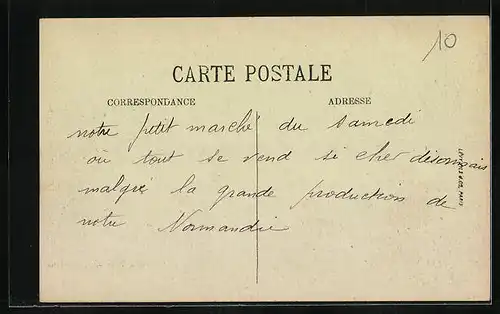 10
CARTE POSTALE
CORRESPONDANCE ADRESSE
notre petit marché du samedi
où tout se vend si cher désormais
malgré la grande production de
notre Normandie